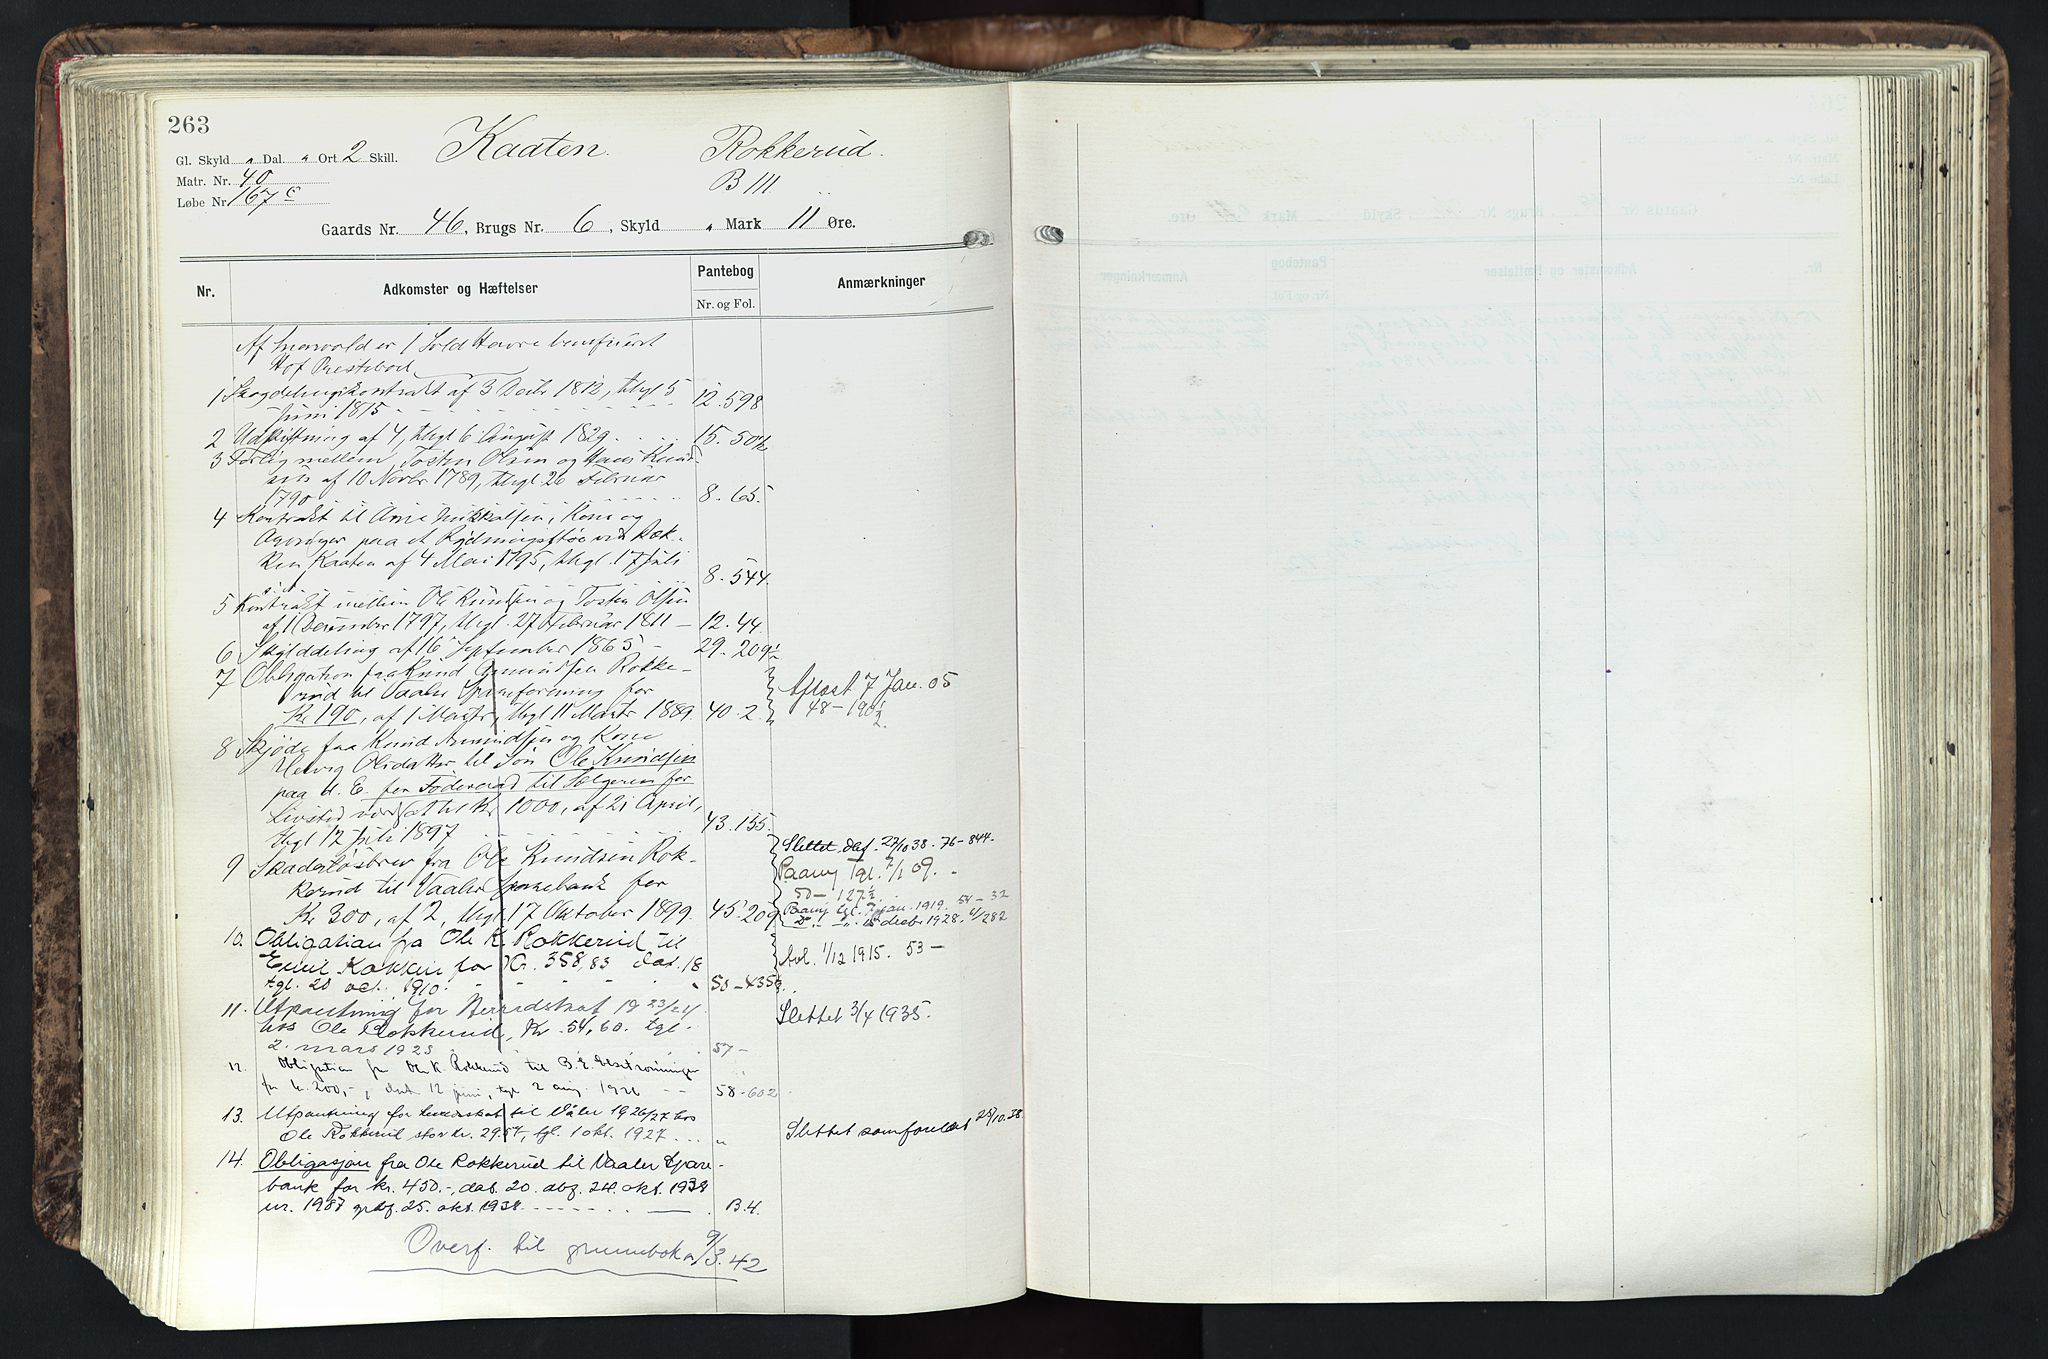 263
Gl. Skyld " Dal. " Ort 2 Skill.
Kaaten. Rokkerud.
B III
Matr. Nr. 40
Løbe Nr. 167 c
Gaards Nr. 46, Brugs Nr. 6, Skyld " Mark 11 Øre.
Nr. Adkomster og Hæftelser Pantebog Anmærkninger
Nr. og Fol.
Af er 1 Sold Havre beneficeret
Hof Prestebol
1 Skogdelingskontrakt af 3 Decbr 1812, thgl 5
Juni 1815 12. 598
2 Udskiftning af 4, thgl 6 August 1829. 15. 504
3 Forlig mellem Tosten Olsen og Hans Knud-
sen af 10 Novbr 1789, thgl 26 Februar
1790 8. 65.
4 Kontrakt til Arne Mikkelsen, Kone og
paa et Rydningsstøe ved Rok-
ken Kaaten af 4 Mai 1795, thgl. 17 Juli
s. A. 8. 544.
5 Kontrakt mellem Ole Knudsen og Tosten Olsen
af 1 December 1797, thgl. 27 Februar 1811 — 12. 44.
6 Skylddeling af 16 September 1865 - 29. 209
7 Obligation fra Knud Amundsen Rokke-
rud til Vaaler Spareforening for
Kr 190, af 1 Marts, thgl 11 Marts 1889. 40. 2.
Aflæst 7 Jan. 05
48 - 190 1/2
8 Skjøde fra Knud Amundsen og Kone
Olsdatter til Søn Ole Knudsen
paa d. E. for Føderaad til Sælgeren for
Livstid værdsat til Kr 1000, af 21 April,
thgl 12 Juli 1897 43. 155.
9 Skadesløsbrev fra Ole Knudsen Rok-
kerud til Vaaler Sparebank for
Kr 300, af 2, thgl 17 Oktober 1899. 45. 209
Slettet daf. 27/10 38. 76-844.
Paany Tgl. 7/1 09.
50 - 127 1/2
Paany tgl. jan. 1919. 54 - 32
Do " decbr 1928.
10. Obligation fra Ole K. Rokkerud til
Emil Kokkin for Kr. 358,83 dat. 18
tgl. 20 oct. 1910. 50 - 435
Avl. 1/12 1915. 53 -
11. Utpantning for Herredskat 1923/24
hos Ole Rokkerud, Kr. 54,60. tgl.
2. mars 1925 57 -
Slettet 3/4 1935.
12. Obligation fra Ole K. Rokkerud til B. E.
for kr. 200,-, dat 12 juni, tgl 2 aug. 1926 58 - 602
13. Utpantning for herredskat til Våler 1926/27 hos
Ole Rokkerud stor kr. 29.57, tgl. 1 okt. 1927 "
Slettet som forældet 25/10. 38.
14. Obligasjon fra Ole Rokkerud til Vaaler Spare-
bank for kr. 450.-, dat. 20. okt. 1938
nr. 1987 25. okt. 1938. B.4.
Overf. til grunnboka 9/3. 42